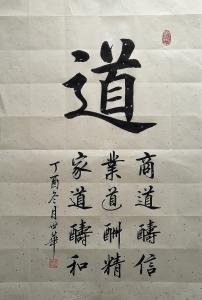 道
商道酬信
業道酬精
家道酬和
丁酉冬月世華